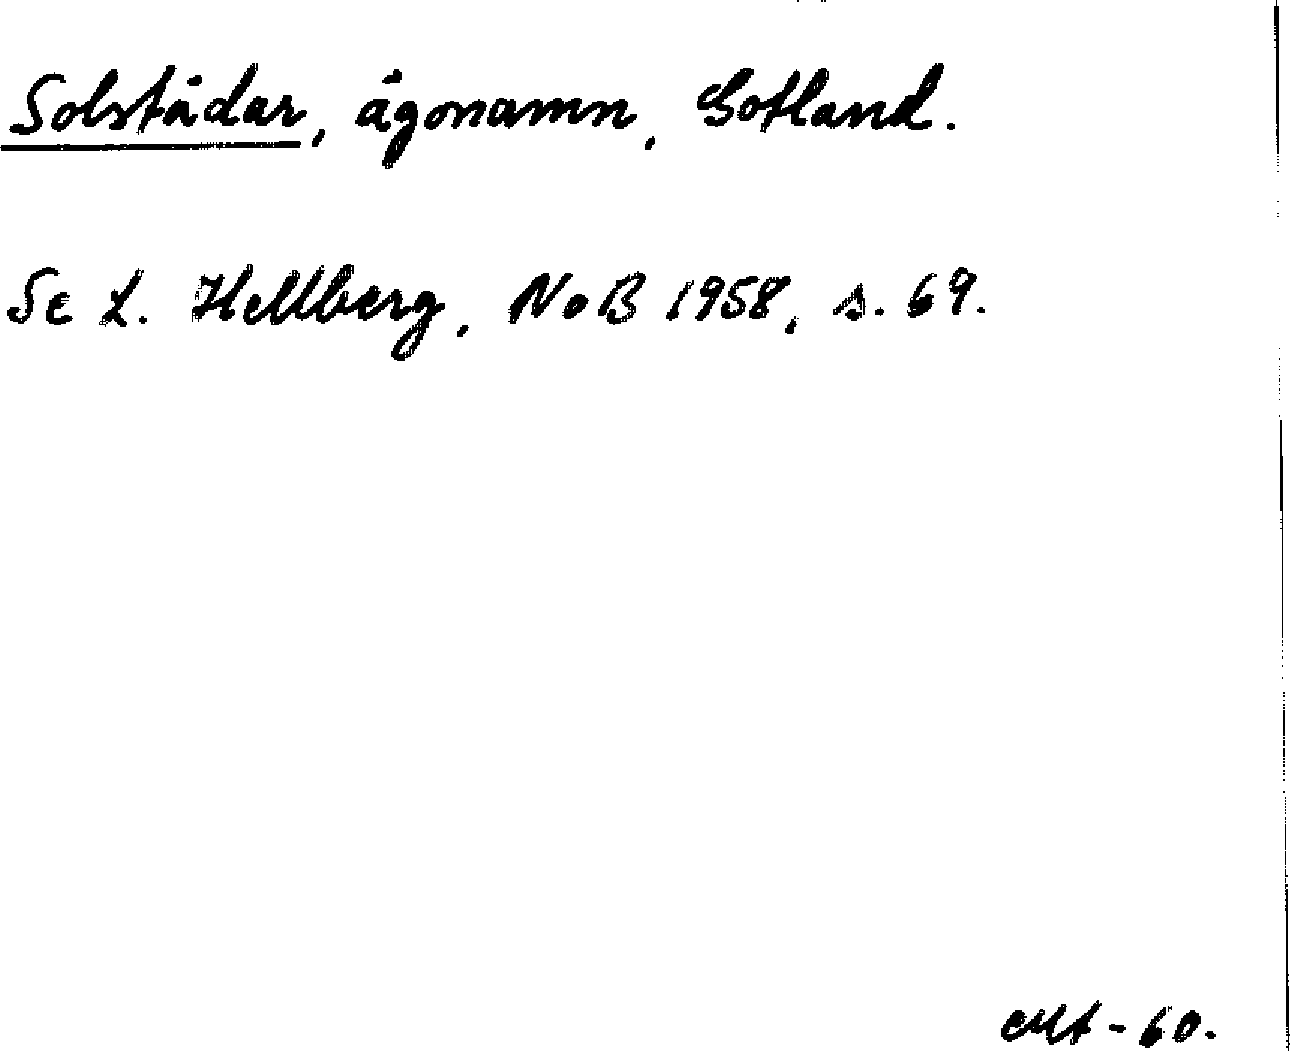 Solstädar, ägonamn, Gotland.
Se L. Hellberg, NoB 1958, s. 69.
-60.